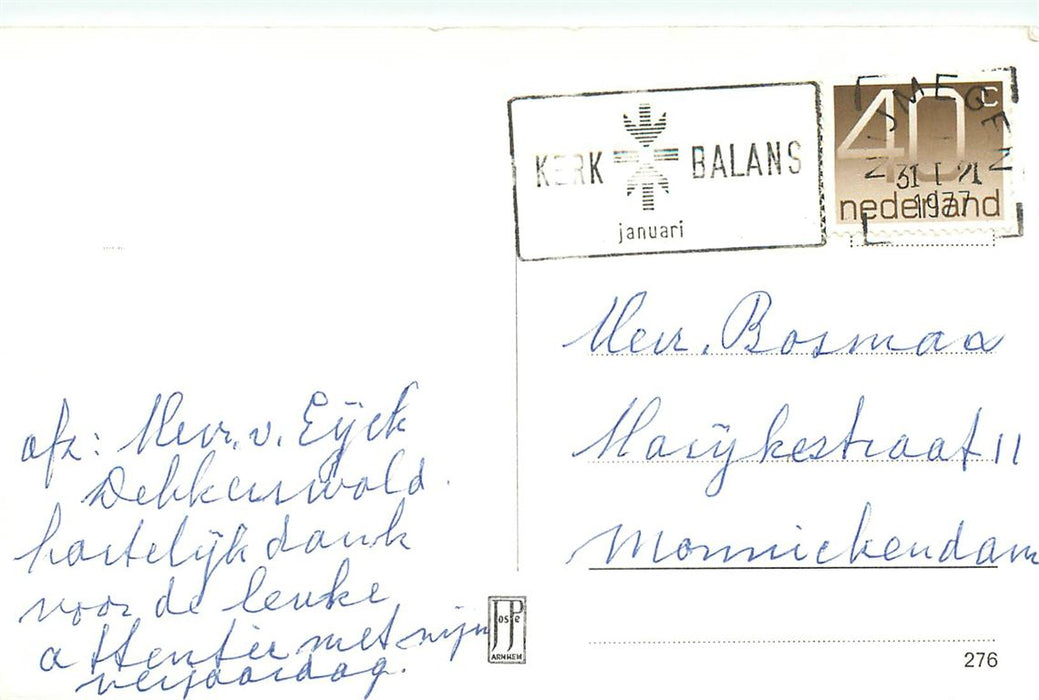 KERK BALANS
januari
40c
nederland
NIJMEGEN
31 I 21
1977
Mevr. Bosmaa
Marijkestraat 11
Monnickendam
afz: Mevr. v. Eijck
Dekkerswald
hartelijk dank
voor de leuke
attentie met mijn
verjaardag.
JosPé
ARNHEM
276